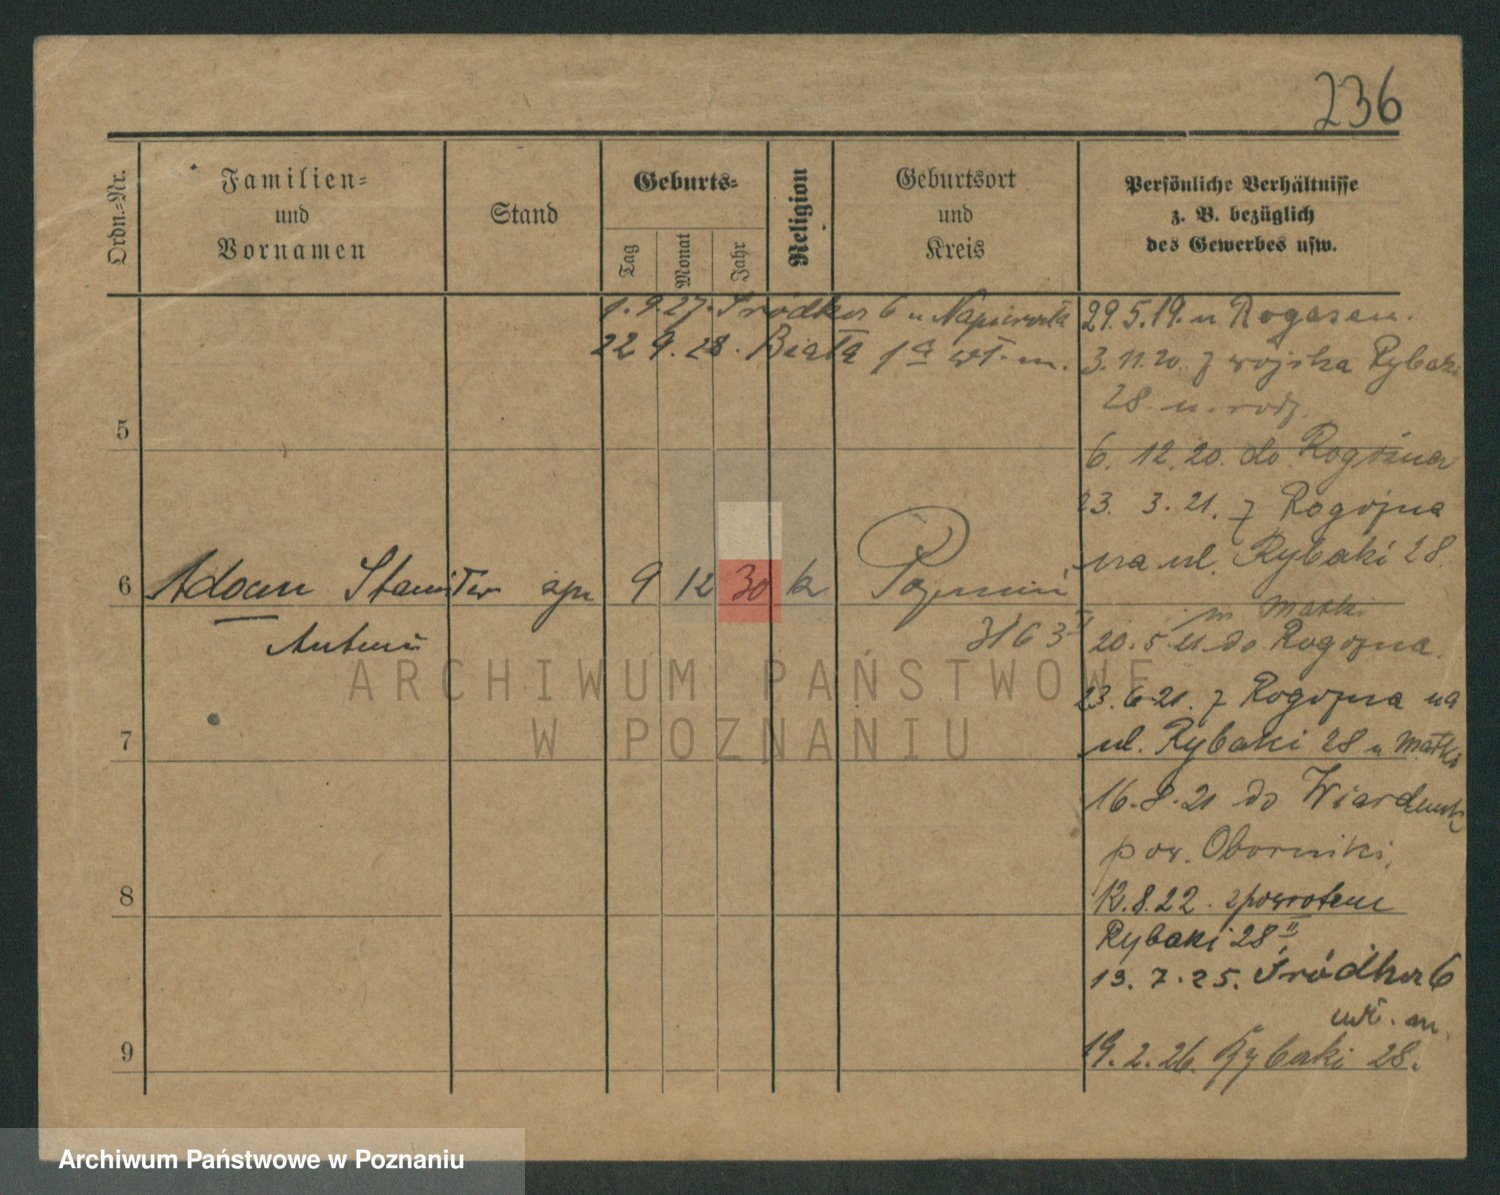 236
Ordn.-Nr.
Familien-
und
Vornamen
Stand
Geburts-
Tag
Monat
Jahr
Religion
Geburtsort
und
Kreis
Persönliche Verhältnisse
z. B. bezüglich
des Gewerbes usw.
1.9.27. Śródka 6 u Napierała
22 9. 28. Biała 1a wł. m.
29.5.19. n Rogasen.
3.11.20. z wojska Rybaki
28 u. rodz.
5
6. 12. 20. do Rogoźna
23. 3. 21. z Rogozna
na ul. Rybaki 28.
6 Adam Stanisław syn 9 12 30 k Poznań
Antoni
u matki
20. 5. 21. do Rogozna.
23. 6. 21. z Rogozna na
ul. Rybaki 28 u matki
7
16. 8. 21 do
pow. Oborniki.
8
12. 8. 22. zpowrotem
Rybaki 28 II
13. 7. 25. Śródka 6
wł. m.
9
19. 2. 26. Rybaki 28.
ARCHIWUM PAŃSTWOWE
W POZNANIU
Archiwum Państwowe w Poznaniu